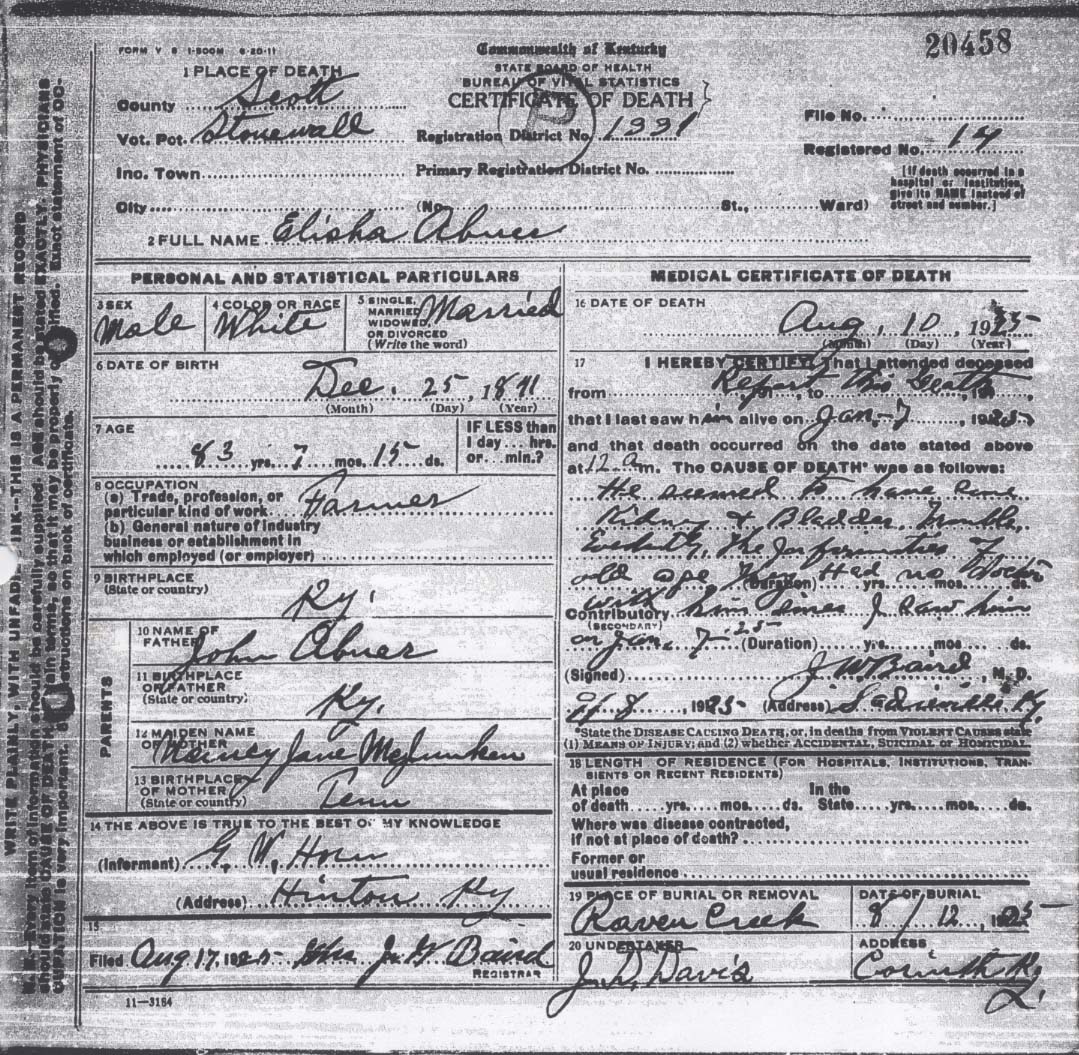 20458
FORM V S 1-500M 6-20-11
Commonwealth of Kentucky
STATE BOARD OF HEALTH
BUREAU OF VITAL STATISTICS
CERTIFICATE OF DEATH
1 PLACE OF DEATH
County Scott
Vot. Pct. Stonewall
Inc. Town
City (No. St., Ward)
Registration District No. 1331
Primary Registration District No.
File No.
Registered No. 14
[If death occurred in a hospital or institution, give its NAME instead of street and number.]
2 FULL NAME Elisha Abner
PERSONAL AND STATISTICAL PARTICULARS
3 SEX Male
4 COLOR OR RACE White
5 SINGLE, MARRIED, WIDOWED, OR DIVORCED (Write the word) Married
6 DATE OF BIRTH
Dec. 25, 1841
(Month) (Day) (Year)
7 AGE
83 yrs. 7 mos. 15 ds.
IF LESS than 1 day... hrs. or... min.?
8 OCCUPATION
(a) Trade, profession, or particular kind of work Farmer
(b) General nature of industry
business or establishment in
which employed (or employer)
9 BIRTHPLACE
(State or country)
Ky.
PARENTS
10 NAME OF FATHER John Abner
11 BIRTHPLACE OF FATHER (State or country) Ky.
12 MAIDEN NAME OF MOTHER Nancy Jane McJunken
13 BIRTHPLACE OF MOTHER (State or country) Tenn
14 THE ABOVE IS TRUE TO THE BEST OF MY KNOWLEDGE
(Informant) G. W. Horn
(Address) Hinton Ky
15
Filed Aug 17, 1925 Mrs J. W. Baird
REGISTRAR
11-3184
MEDICAL CERTIFICATE OF DEATH
16 DATE OF DEATH
Aug, 10, 1925
(Month) (Day) (Year)
17 I HEREBY CERTIFY, That I attended deceased
from Report this Death, to
that I last saw him alive on Jan. 7, 1925
and that death occurred on the date stated above
at 12 a m. The CAUSE OF DEATH* was as follows:
He seemed to have some
Kidney & Bladder Trouble,
The Infirmities of
old age They Had no Doctor
(Duration) yrs. mos. ds.
Contributory with him since I saw him
(SECONDARY)
on Jan. 7-25 (Duration) yrs. mos. ds.
(Signed) J. W. Baird, M. D.
8, 1925 (Address) Sadieville Ky.
*State the DISEASE CAUSING DEATH, or, in deaths from VIOLENT CAUSES state
(1) MEANS OF INJURY; and (2) whether ACCIDENTAL, SUICIDAL or HOMICIDAL
18 LENGTH OF RESIDENCE (FOR HOSPITALS, INSTITUTIONS, TRANSIENTS OR RECENT RESIDENTS)
At place of death yrs. mos. ds. In the State yrs. mos. ds.
Where was disease contracted,
If not at place of death?
Former or
usual residence
19 PLACE OF BURIAL OR REMOVAL Raven Creek
DATE OF BURIAL 8/12, 1925
20 UNDERTAKER J. D. Davis
ADDRESS Corinth Ky
WRITE PLAINLY, WITH UNFADING INK—THIS IS A PERMANENT RECORD
N. B.—Every item of information should be carefully supplied. AGE should be stated EXACTLY. PHYSICIANS
should state CAUSE OF DEATH in plain terms, so that it may be properly classified. Exact statement of OC-
CUPATION is very important. See instructions on back of certificate.